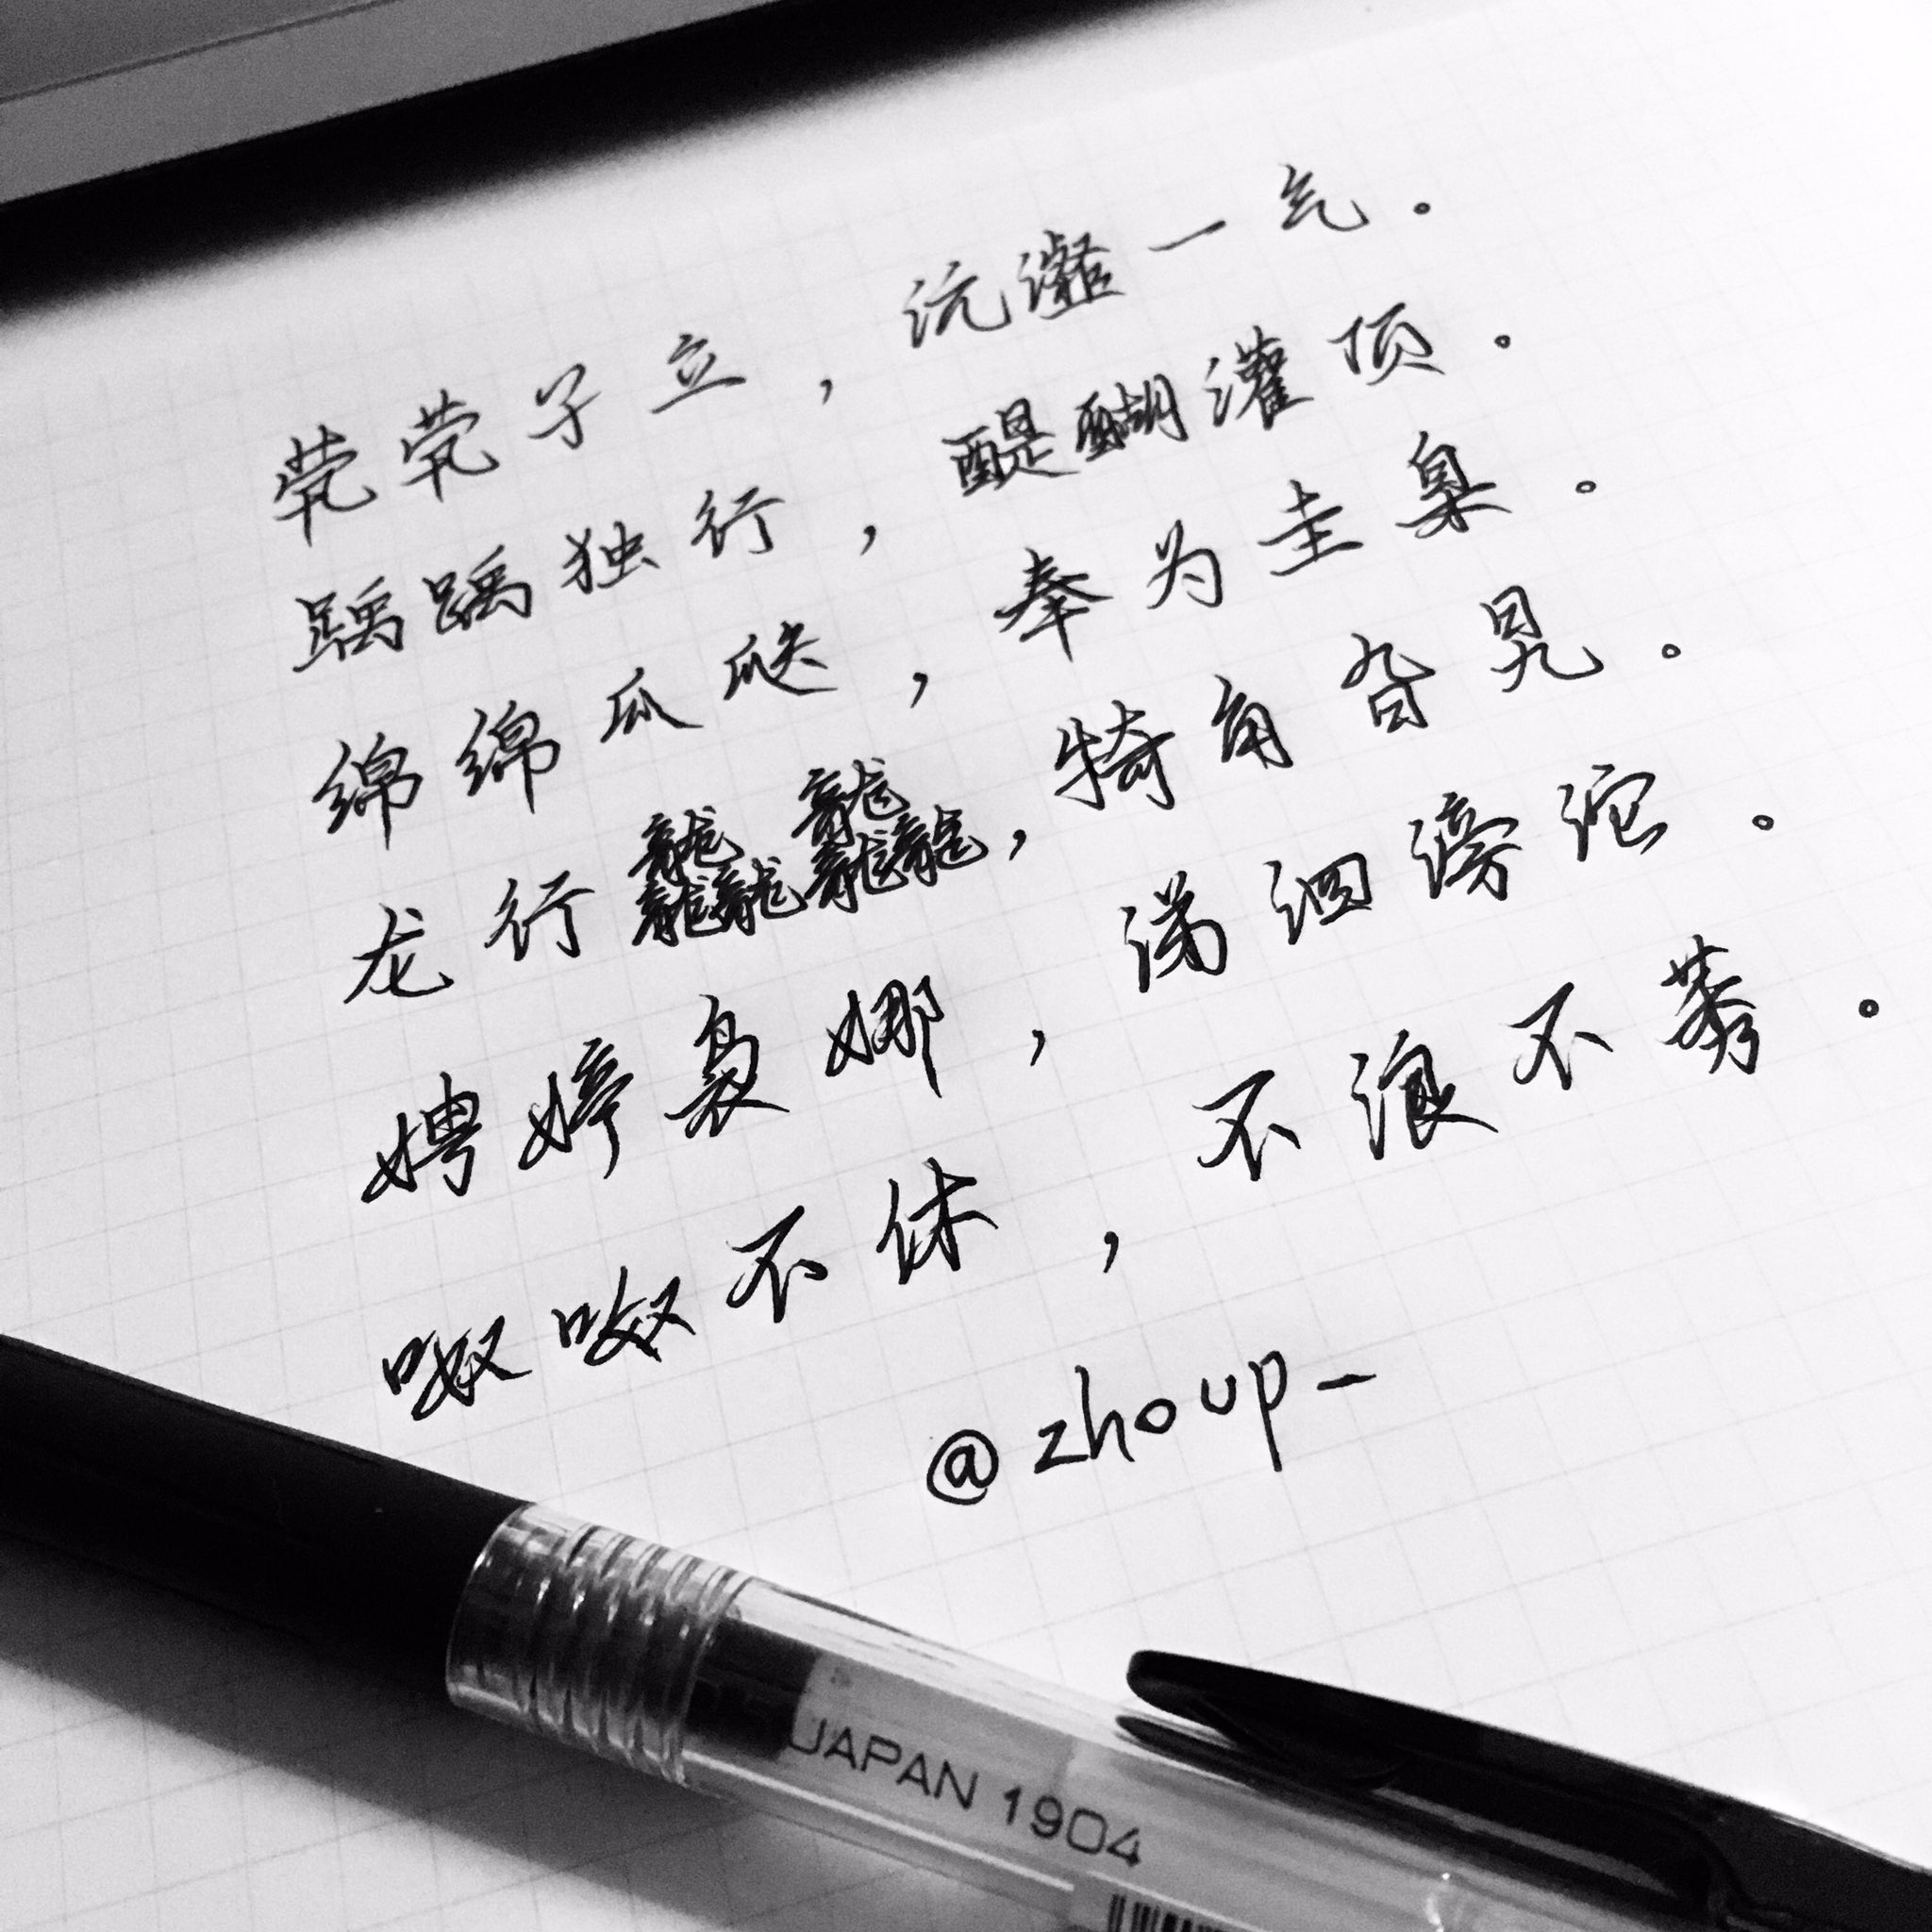 茕茕孑立，沆瀣一气。
踽踽独行，醍醐灌顶。
绵绵瓜瓞，奉为圭臬。
龙行龘龘，犄角旮旯。
娉婷袅娜，涕泗滂沱。
呶呶不休，不浪不莠。
@zhoup_
JAPAN 1904